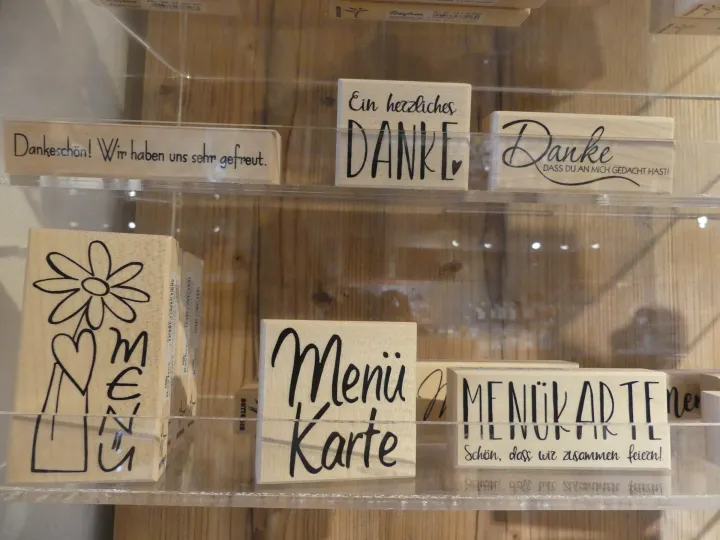 Dankeschön! Wir haben uns sehr gefreut.
Ein herzliches
DANKE
Danke
DASS DU AN MICH GEDACHT HAST!
MENÜ
Menü
Karte
MENÜKARTE
Schön, dass wir zusammen feiern!